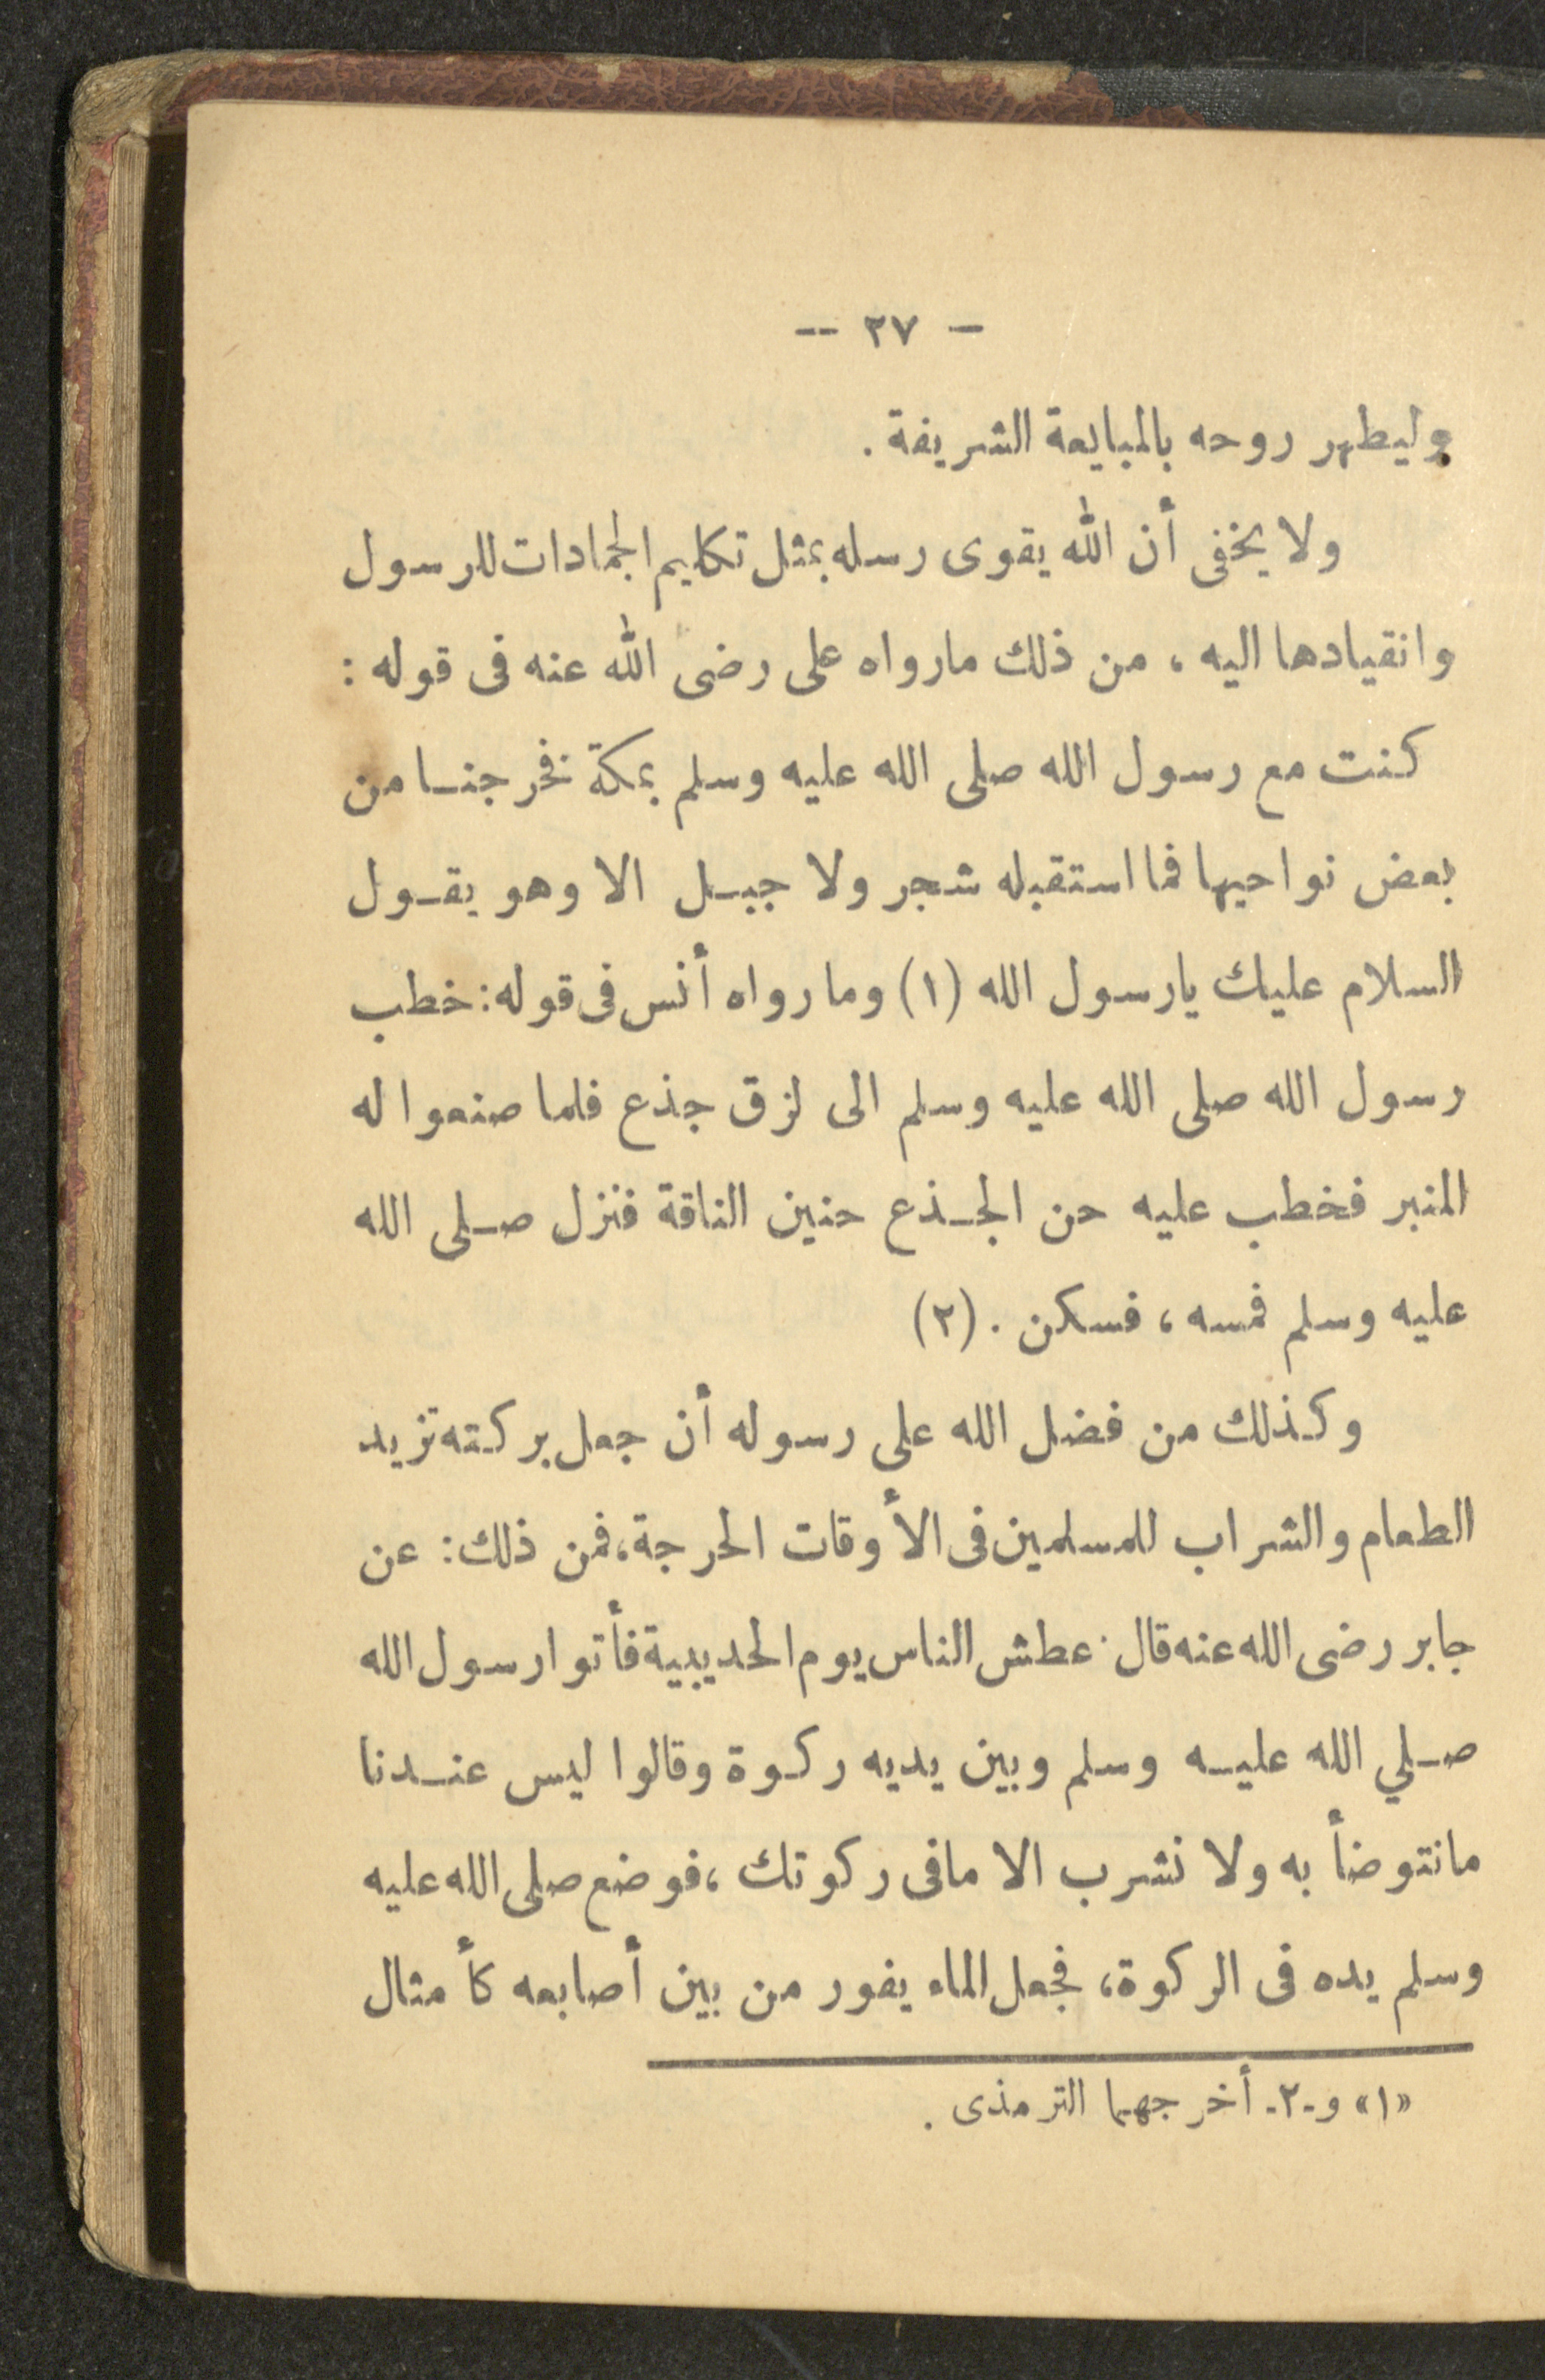 — ٢٧ --
وليطهر روحه بالمبايعة الشريفة .
ولا يخفى أن الله يقوى رسله بمثل تكليم الجمادات للرسول
وانقيادها اليه ، من ذلك مارواه على رضى الله عنه فى قوله :
كنت مع رسول الله صلى الله عليه وسلم بمكة فخرجنا من
بعض نواحيها فما استقبله شجر ولا جبل الا وهو يقول
السلام عليك يارسول الله (١) وما رواه أنس فى قوله : خطب
رسول الله صلى الله عليه وسلم الى لزق جذع فلما صنعوا له
المنبر فخطب عليه حن الجذع حنين الناقة فنزل صلى الله
عليه وسلم فمسه ، فسكن . (٢)
وكذلك من فضل الله على رسوله أن جعل بركته تزيد
الطعام والشراب للمسلمين فى الأوقات الحرجة ، فمن ذلك : عن
جابر رضى الله عنه قال . عطش الناس يوم الحديبية فأتوا رسول الله
صلي الله عليه وسلم وبين يديه ركوة وقالوا ليس عندنا
مانتوضأ به ولا نشرب الا مافى ركوتك ، فوضع صلى الله عليه
وسلم يده فى الركوة ، فجعل الماء يفور من بين أصابعه كأمثال
«١» و-٢- أخرجهما الترمذى .